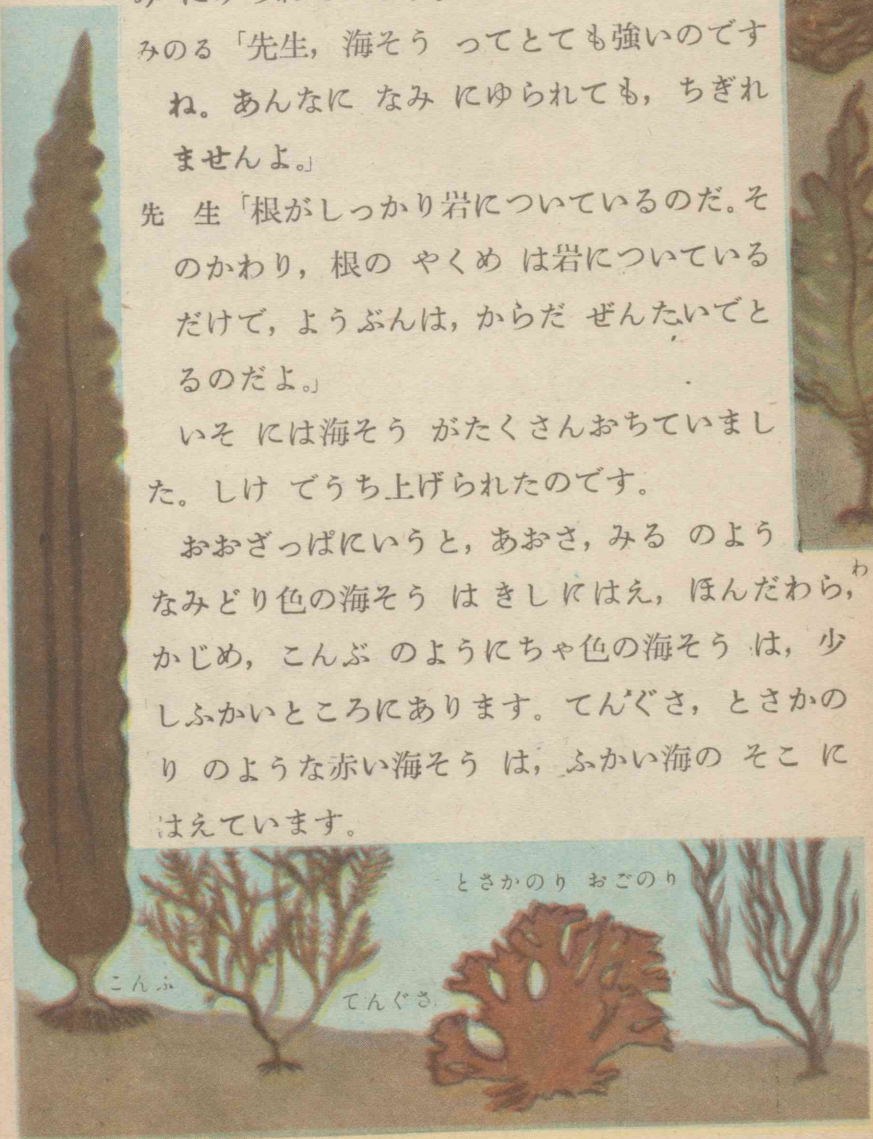 みのる「先生，海そう ってとても強いのです
ね。あんなに なみ にゆられても，ちぎれ
ませんよ。」
先 生「根がしっかり岩についているのだ。そ
のかわり，根の やくめ は岩についている
だけで，ようぶんは，からだ ぜんたいでと
るのだよ。」
いそ には海そう がたくさんおちていまし
た。しけ でうち上げられたのです。
おおざっぱにいうと，あおさ，みる のよう
なみどり色の海そう は きしにはえ，ほんだわら，
かじめ，こんぶ のようにちゃ色の海そう は，少
しふかいところにあります。てんぐさ，とさかの
り のような赤い海そう は，ふかい海の そこ に
はえています。
わ
とさかのり おごのり
こんぶ
てんぐさ